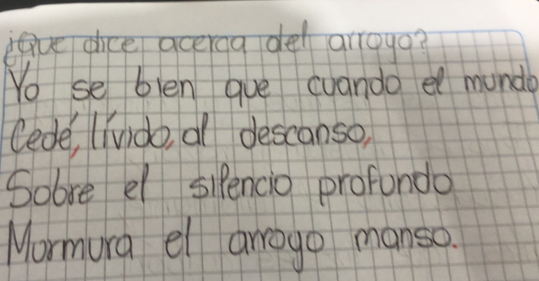 ¿Que dice acerca del arroyo?
Yo se bien que cuando el mundo
Cede, lívido, al descanso,
Sobre el silencio profundo
Mormura el arroyo manso.